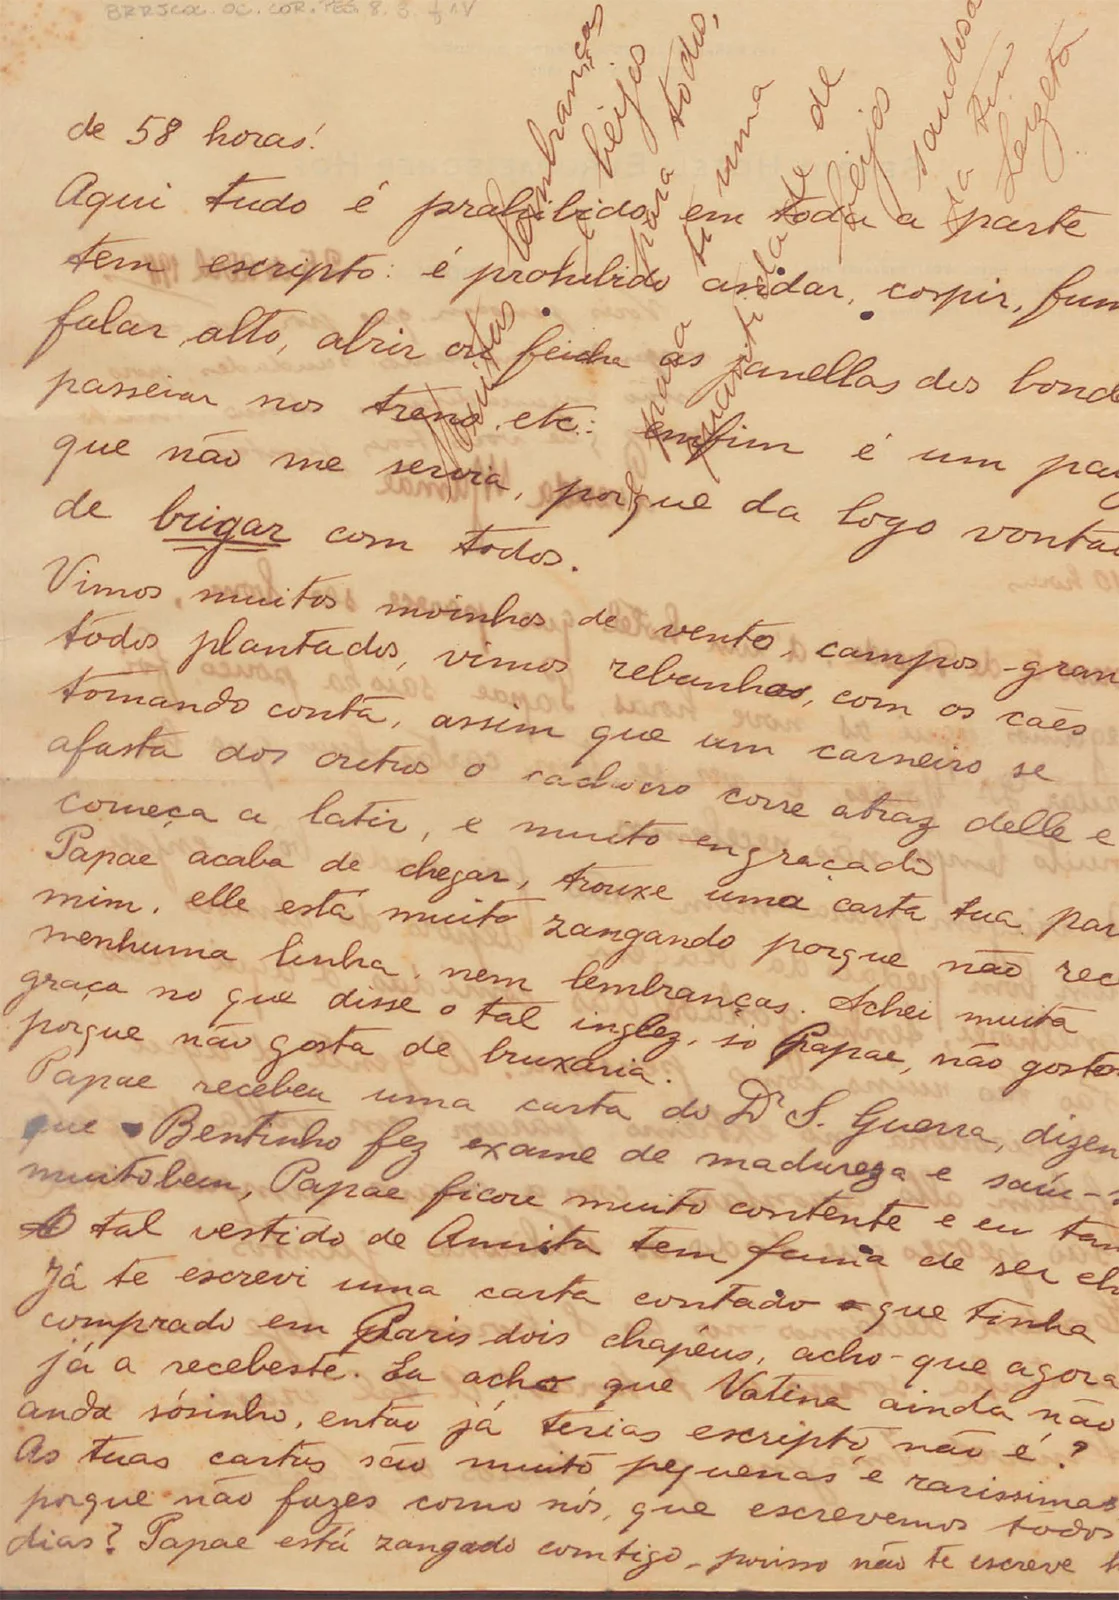 BRRJCOC.OC.COR.PES.8.3 f 1v
de 58 horas!
Aqui tudo é prohibido, em toda a parte
tem escripto: é prohibido andar, cospir, fum
falar alto, abrir ou feicha as janellas dos bond
passeiar nos trens, etc.: emfim é um pai
que não me serviria, porque da logo vonta
de brigar com todos.
Vimos, muitos moinhos de vento, campos gran
todos plantados, vimos rebanhos, com os cães
tomando conta, assim que um carneiro se
afasta dos outros o cachorro corre atraz delle e
começa a latir, e muito engraçado
Papae acaba de chegar, trouxe uma carta tua par
mim, elle está muito zangando porque não rec
nenhuma linha, nem lembranças. Achei muita
graça no que disse o tal inglez, só Papae, não gosto
porque não gosta de bruxaria.
Papae recebeu uma carta do Dr S. Guerra, dizen
que Bentinho fez exame de madureza e saiu-
muito bem, Papae ficou muito contente e eu tam
O tal vestido de Annita tem fama de ser ch
Já te escrevi uma carta contado que tinha
comprado em Paris dois chapéus, acho que agora
já a recebeste. Eu acho que Vatina ainda não
anda sósinho, então já terias escripto, não é?
As tuas cartas são muito pequenas e rarissimas
porque não fazes como nós, que escrevemos todos
dias? Papae está zangado comtigo, porisso não te escreve
Muitas lembranças
e beijos
para todos,
para ti uma
quantidade de
beijos
saudosa
da tua